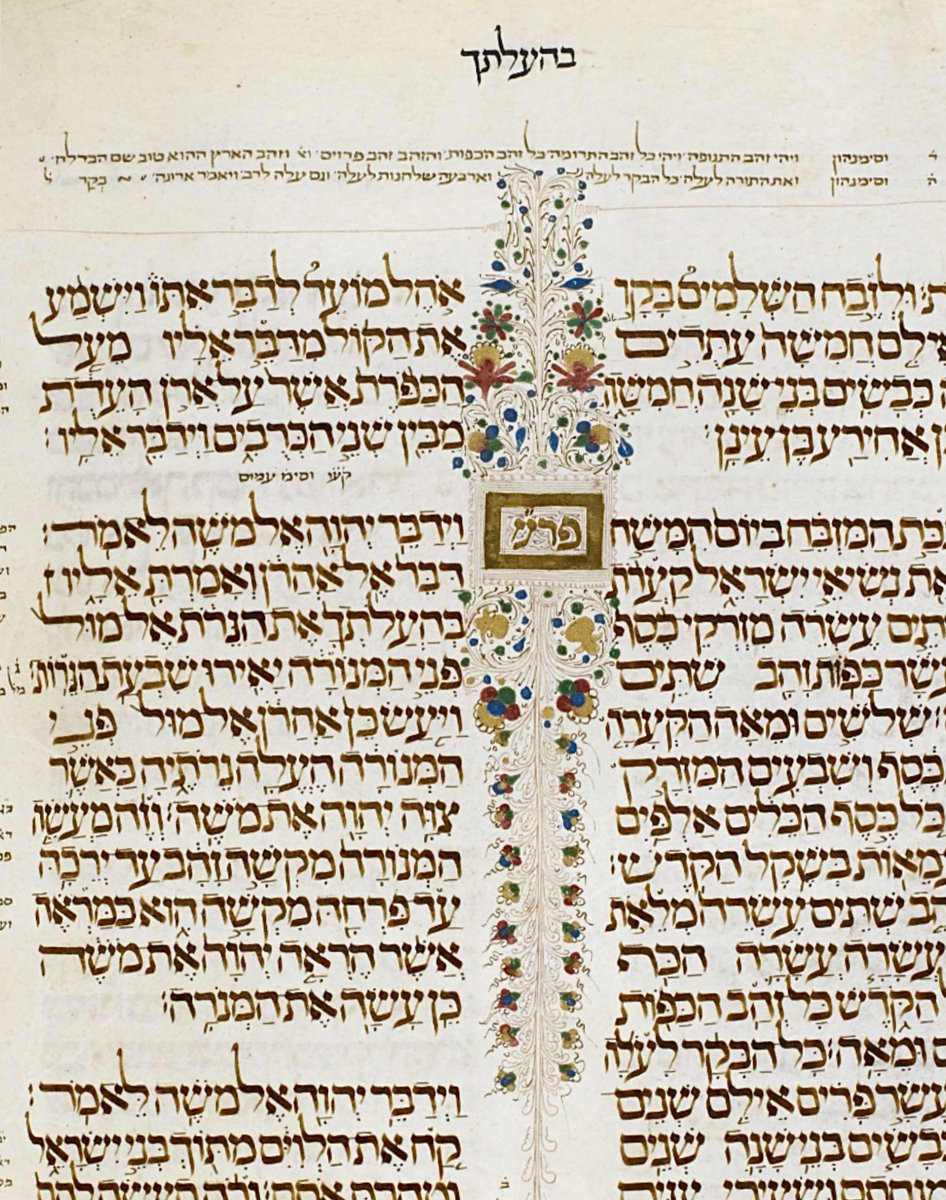 בהעלתך
וסימנהון ויהי זהב התנופה ויהי כל זהב התרומה כל זהב הכפות והזהב זהב פרוים וזהב הארץ ההוא טוב שם הבדלח
וסימנהון ואת התורה לעלה כל הבקר לעלה וארבעה שלחנות לעלה וגם עלה לרב ויאמר ארונה בקר
ולזבח השלמים בקר
אילם חמשה עתדים
כבשים בני שנה חמשה
אחירע בן עינן׃
המזבח ביום המשח
את נשיאי ישראל קערת
עשרה מזרקי כסף
כפות זהב שתים
שלשים ומאה הקערה
כסף ושבעים המזרק
כל כסף הכלים אלפים
מאות בשקל הקדש׃
שתים עשרה מלאת
עשרה עשרה הכף
הקדש כל זהב הכפות
ומאה׃ כל הבקר לעלה
עשר פרים אילם שנים
כבשים בני שנה שנים
ושעירי
פרש
אהל מועד לדבר אתו וישמע
את הקול מדבר אליו מעל
הכפרת אשר על ארן העדת
מבין שני הכרבים וידבר אליו׃
קעו וסימ עמוס
וידבר יהוה אל משה לאמר׃
דבר אל אהרן ואמרת אליו
בהעלתך את הנרת אל מול
פני המנורה יאירו שבעת הנרות׃
ויעש כן אהרן אל מול פני
המנורה העלה נרתיה כאשר
צוה יהוה את משה׃ וזה מעשה
המנורה מקשה זהב עד ירכה
עד פרחה מקשה הוא כמראה
אשר הראה יהוה את משה
כן עשה את המנרה׃
וידבר יהוה אל משה לאמר׃
קח את הלוים מתוך בני ישראל
וטהרת אתם׃ וכה תעשה להם